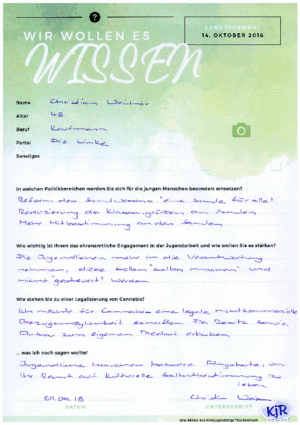 ?
WIR WOLLEN ES
WISSEN
LANDTAGSWAHL
14. OKTOBER 2018
Name Christian Weidner
Alter 48
Beruf Kaufmann
Partei Die Linke
Sonstiges
In welchen Politikbereichen werden Sie sich für die jungen Menschen besonders einsetzen?
Reform des Schulsystems "eine Schule für alle"
Reduzierung der Klassengrössen an Schulen
Mehr Mitbestimmung an den Schulen
Wie wichtig ist Ihnen das ehrenamtliche Engagement in der Jugendarbeit und wie wollen Sie es stärken?
Die Jugendlichen mehr in die Verantwortung
nehmen, diese sollen "selbst machen" und
nicht "gesteuert" werden.
Wie stehen Sie zu einer Legalisierung von Cannabis?
Ich möchte für Cannabis eine legale nichtkommerzielle
Bezugsmöglichkeit schaffen. Der Besitz sowie
Anbau zum eigenen Bedarf erlauben.
... was ich noch sagen wollte!
Jugendliche brauchen bessere Angebote, um
ihr Recht auf kulturelle Selbstbestimmung zu
leben.
DATUM
UNTERSCHRIFT
KJR
eine Aktion des Kreisjugendrings